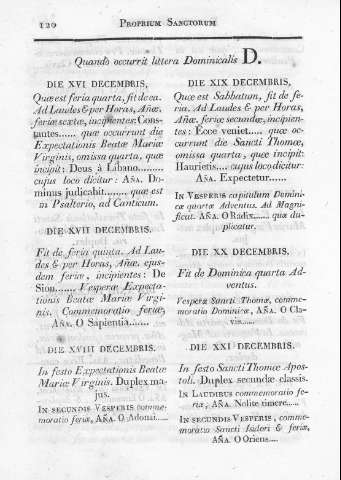 120 PROPRIUM SANCTORUM
Quando occurrit littera Dominicalis D.
DIE XVI DECEMBRIS,
Quæ est feria quarta, fit de ea.
Ad Laudes & per Horas, Añæ.
feriæ sextæ, incipientes: Cons-
tantes...... quæ occurrunt die
Expectationis Beatæ Mariæ
Virginis, omissa quarta, quæ
incipit: Deus à Libano.........
cujus loco dicitur: AÑA. Do-
minus judicabit........ quæ est
in Psalterio, ad Canticum.
DIE XVII DECEMBRIS.
Fit de feria quinta. Ad Lau-
des & per Horas, Añæ. ejus-
dem feriæ, incipientes: De
Sion....... Vesperæ Expecta-
tionis Beatæ Mariæ Virgi-
nis. Commemoratio feriæ,
AÑA. O Sapientia.......
DIE XVIII DECEMBRIS.
In festo Expectationis Beatæ
Mariæ Virginis. Duplex ma-
jus.
IN SECUNDIS VESPERIS comme-
moratio feriæ, AÑA. O Adonai.....
DIE XIX DECEMBRIS,
Quæ est Sabbatum, fit de fe-
ria. Ad Laudes & per Horas,
Añæ. feriæ secundæ, incipien-
tes: Ecce veniet..... quæ oc-
currunt die Sancti Thomæ,
omissa quarta, quæ incipit:
Haurietis.... cujus loco dicitur:
AÑA. Expectetur......
IN VESPERIS capitulum Domini-
cæ quartæ Adventus. Ad Magni-
ficat. AÑA. O Radix....... quæ du-
plicatur.
DIE XX DECEMBRIS.
Fit de Dominica quarta Ad-
ventus.
Vesperæ Sancti Thomæ, comme-
moratio Dominicæ, AÑA. O Cla-
vis......
DIE XXI DECEMBRIS.
In festo Sancti Thomæ Apos-
toli. Duplex secundæ classis.
IN LAUDIBUS commemoratio fe-
riæ, AÑA. Nolite timere.....
IN SECUNDIS VESPERIS, comme-
moratio Sancti Isidori & feriæ,
AÑA. O Oriens....